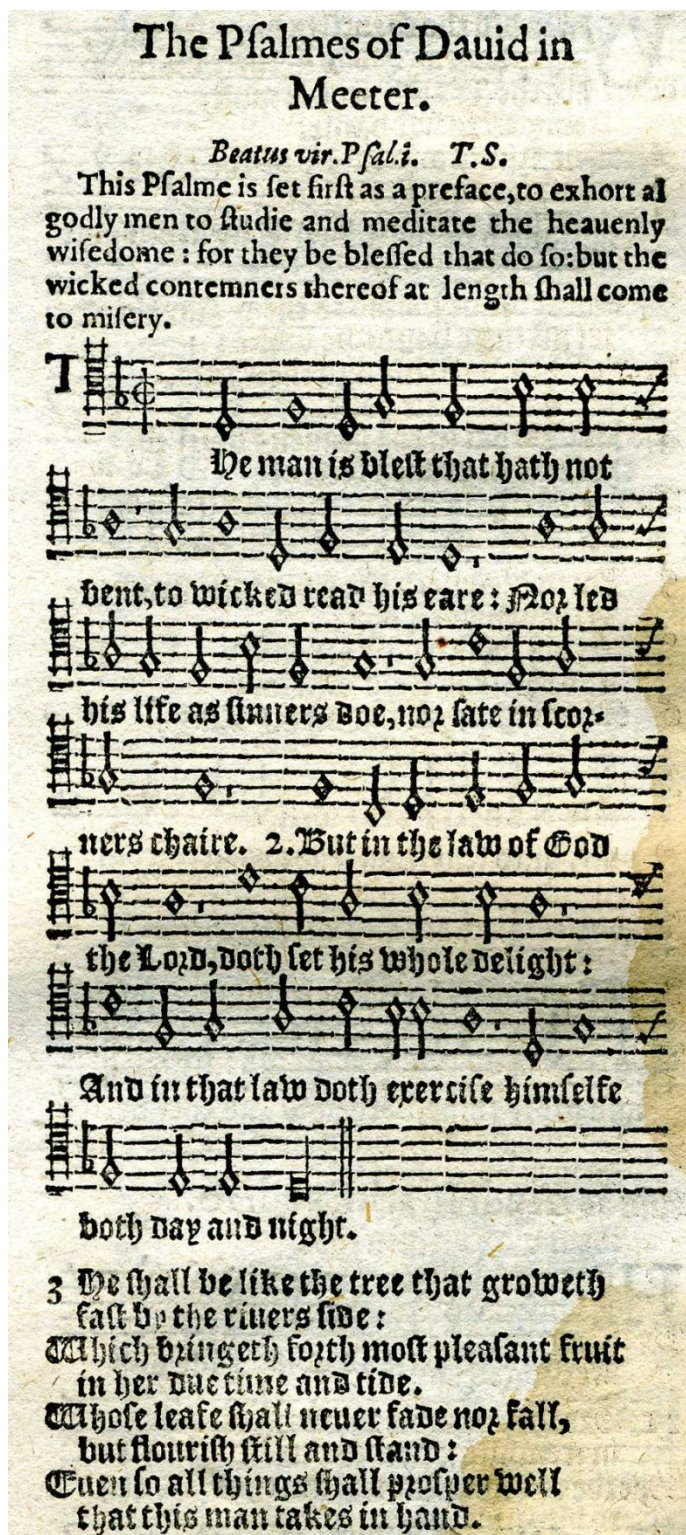 The Pſalmes of Dauid in
Meeter.
Beatus vir. Pſal.i. T.S.
This Pſalme is ſet firſt as a preface, to exhort al
godly men to ſtudie and meditate the heauenly
wiſedome : for they be bleſſed that do ſo: but the
wicked contemners thereof at length ſhall come
to miſery.
T
He man is bleſt that hath not
bent, to wicked read his eare : Nor led
his life as ſinners doe, nor ſate in ſcor-
ners chaire. 2. But in the law of God
the Lord, doth ſet his whole delight :
And in that law doth exerciſe himſelfe
both day and night.
3 He ſhall be like the tree that groweth
faſt by the riuers ſide :
Which bringeth forth moſt pleaſant fruit
in her due time and tide.
Whoſe leafe ſhall neuer fade nor fall,
but flouriſh ſtill and ſtand :
Euen ſo all things ſhall proſper well
that this man takes in hand.